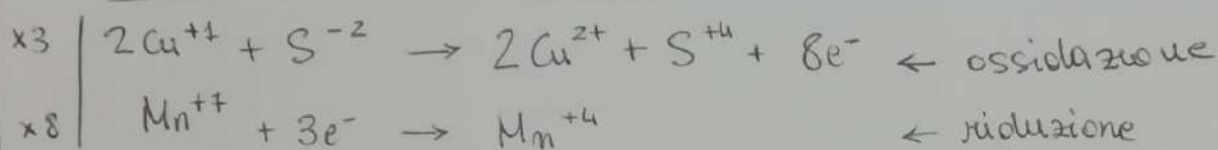 ×3 | 2Cu⁺¹ + S⁻² → 2Cu²⁺ + S⁺⁴ + 8e⁻ ← ossidazione
×8 | Mn⁺⁷ + 3e⁻ → Mn⁺⁴ ← riduzione